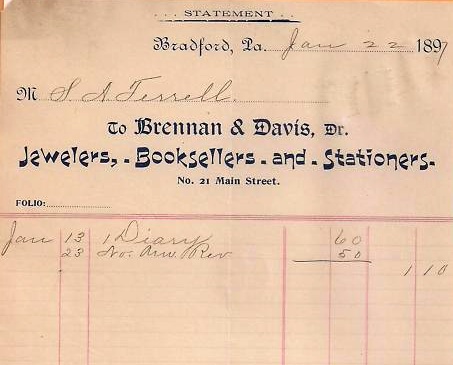 STATEMENT
Bradford, Pa. Jan 22 1897
M S A Terrell.
To Brennan & Davis, Dr.
Jewelers, - Booksellers - and - Stationers-
No. 21 Main Street.
FOLIO:
Jan 13 1 Diary 60
23 No. Am. Rev 50
1 10